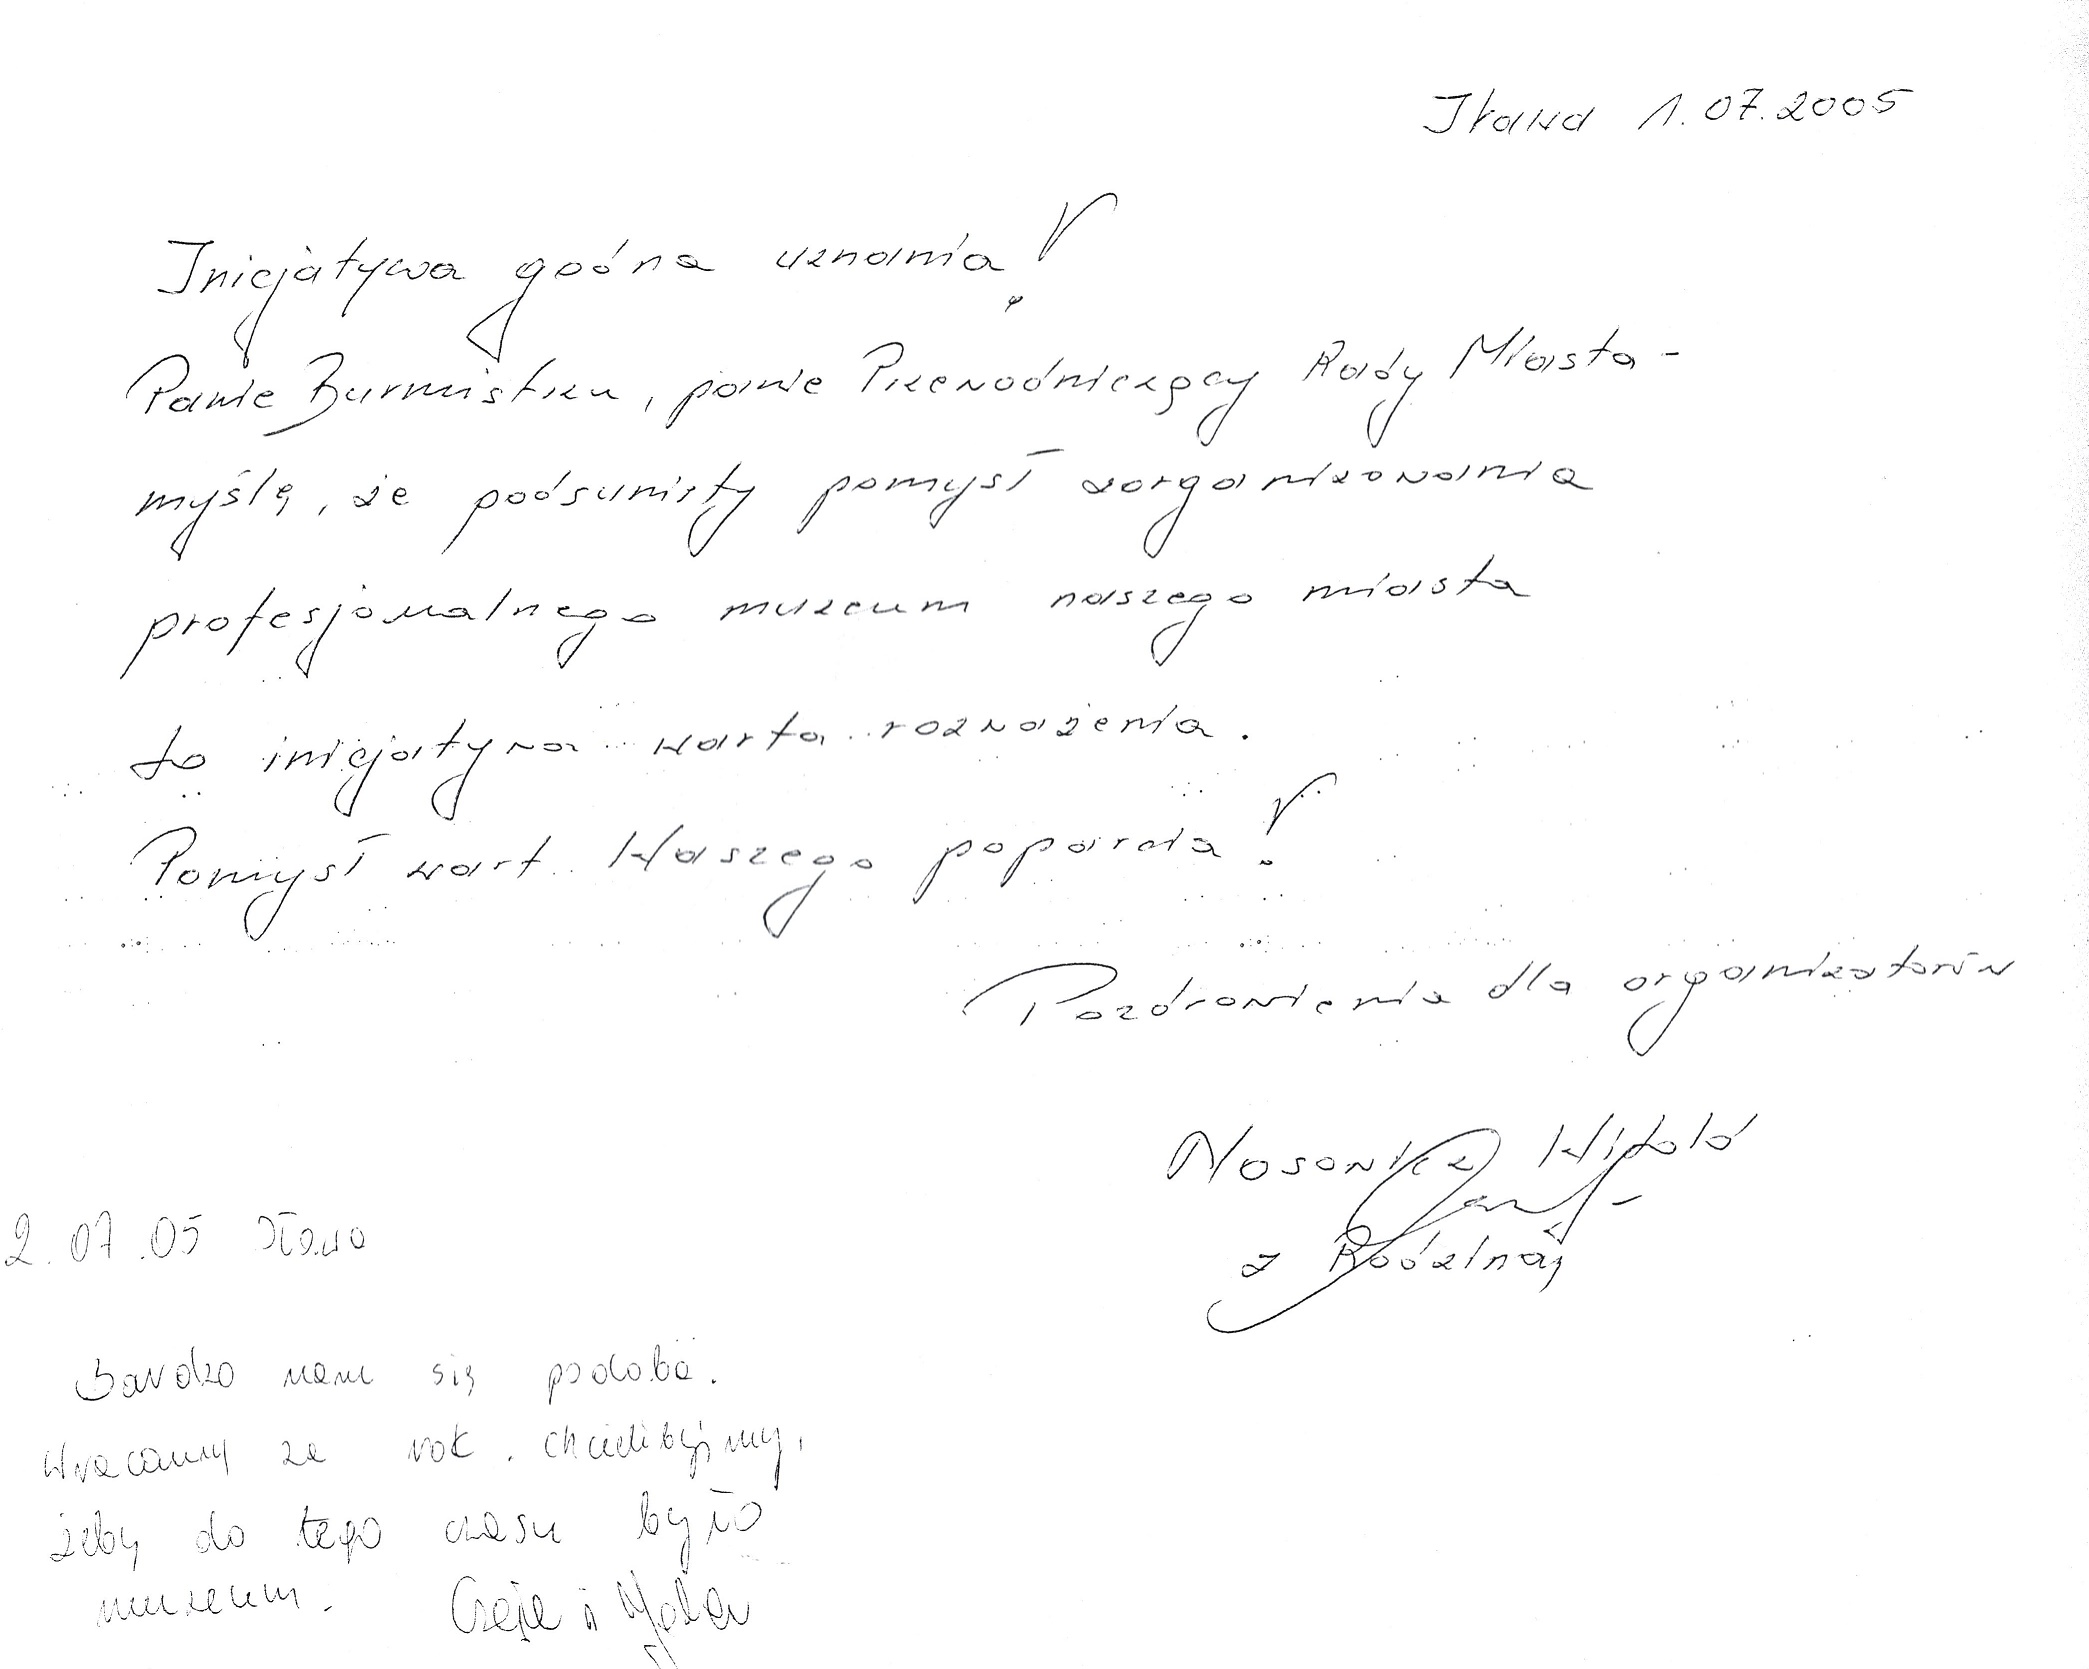 Iława 1.07.2005
Inicjatywa godna uznania!
Panie Burmistrzu, panie Przewodniczący Rady Miasta -
myślę, że podsunięty pomysł zorganizowania
profesjonalnego muzeum naszego miasta
to inicjatywa warta rozważenia.
Pomysł wart Waszego poparcia!
Pozdrowienia dla organizatorów
Nosowicz Witold
z Rodziną
2.07.05 Iława
Bardzo nam się podoba.
Wracamy za rok. chcielibyśmy,
żeby do tego czasu było
muzeum.